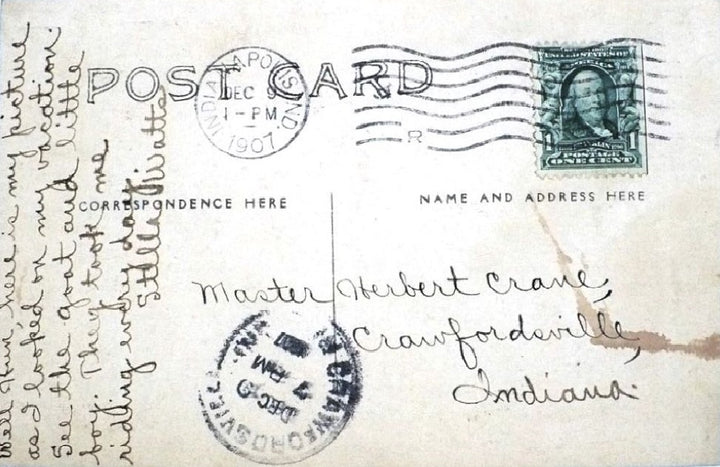 POST CARD
INDIANAPOLIS, IND.
DEC 9
1-PM
1907
R
UNITED STATES OF AMERICA
1
POSTAGE
ONE CENT
CORRESPONDENCE HERE
NAME AND ADDRESS HERE
Well Hun, here is my picture
as I looked on my vacation.
See the goat and little
boy. They took me
riding every day.
Stella Watts
Master Herbert Crane,
Crawfordsville,
Indiana.
CRAWFORDSVILLE
DEC 9
7 PM